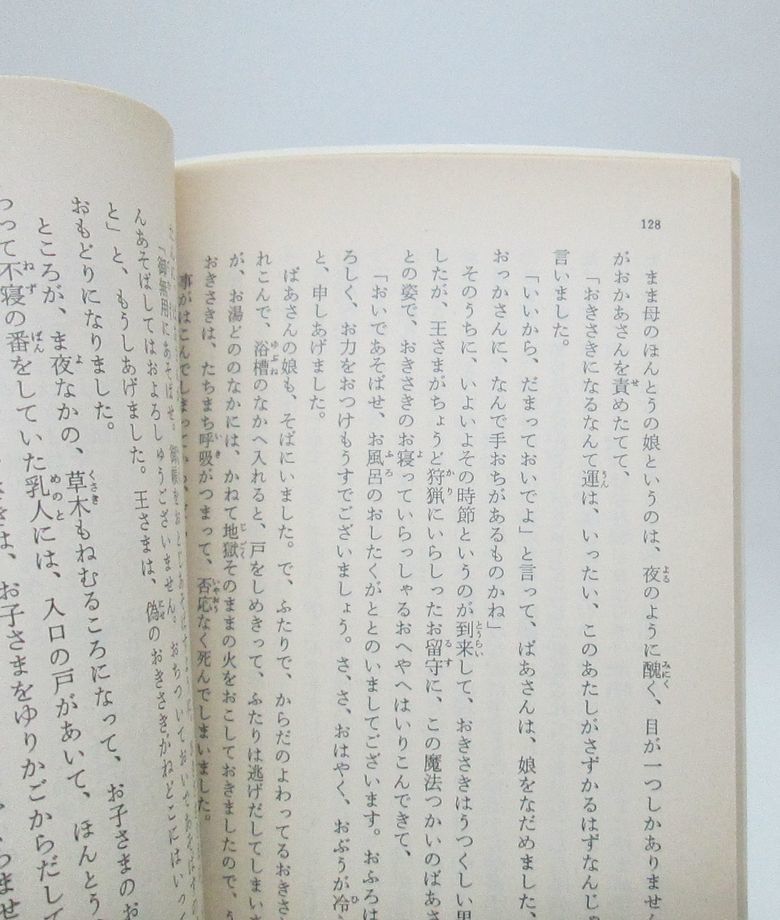 128
まま母のほんとうの娘というのは、夜のように醜く、目が一つしかありませ
がおかあさんを責めたてて、
「おきさきになるなんて運は、いったい、このあたしがさずかるはずなんじ
言いました。
「いいから、だまっておいでよ」と言って、ばあさんは、娘をなだめました、
おっかさんに、なんで手おちがあるものかね」
そのうちに、いよいよその時節というのが到来して、おきさきはうつくしい男
したが、王さまがちょうど狩猟にいらしったお留守に、この魔法つかいのばあさ
との姿で、おきさきのお寝っていらっしゃるおへやへはいりこんできて、
「おいであそばせ、お風呂のおしたくがととのいましてございます。おふろは
ろしく、お力をおつけもうすでございましょう。さ、さ、おはやく、おぶうが冷
と、申しあげました。
ばあさんの娘も、そばにいました。で、ふたりで、からだのよわってるおきさ
れこんで、浴槽のなかへ入れると、戸をしめきって、ふたりは逃げだしてしまいま
が、お湯どののなかには、かねて地獄そのままの火をおこしておきましたので、う
おきさきは、たちまち呼吸がつまって、否応なく死んでしまいました。
事がはこんでしまって
「御無用にあそばせ。
んあそばしてはおよろしゅうございません。おちついておいであそば
と」と、もうしあげました。王さまは、偽のおきさきがねどこにはいっ
おもどりになりました。
ところが、ま夜なかの、草木もねむるころになって、お子さまのお
って不寝の番をしていた乳人には、入口の戸があいて、ほんとう
きは、お子さまをゆりかごからだして